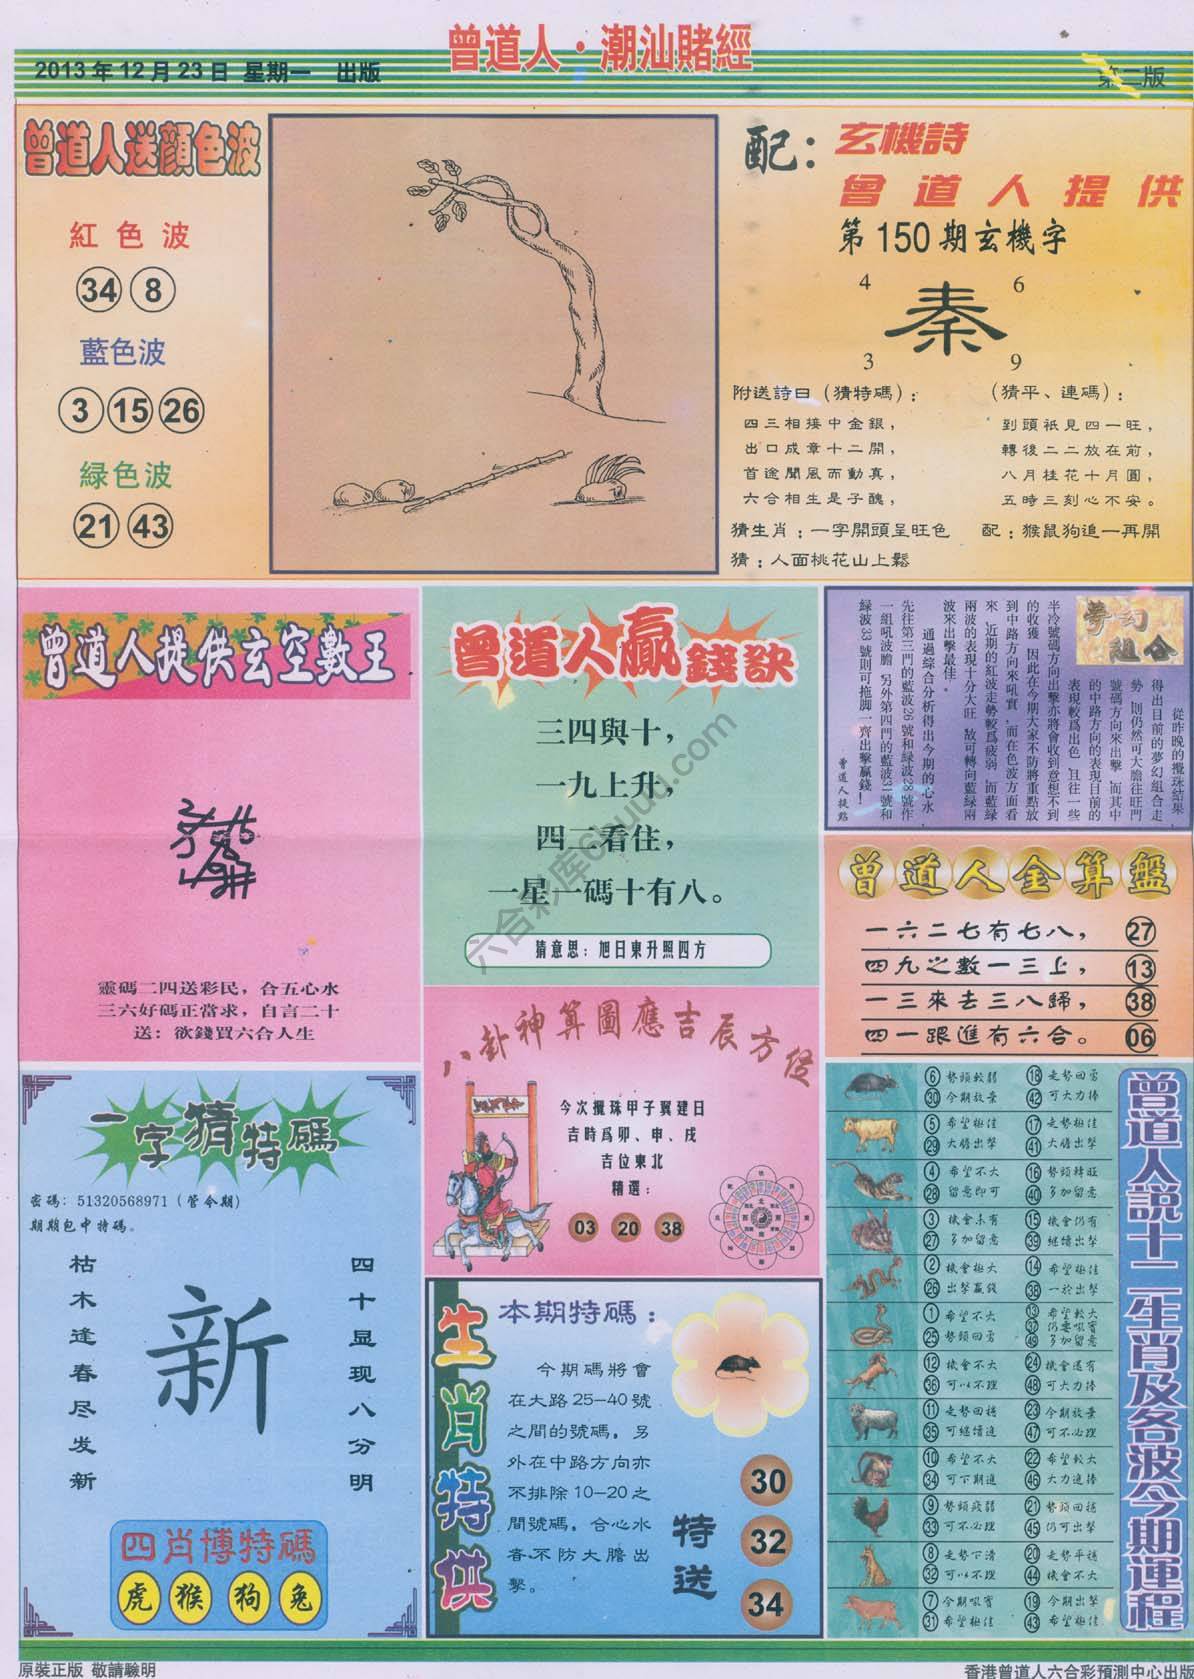 曾道人·潮汕賭經
2013年12月23日 星期一 出版
第二版
曾道人送顔色波
紅色波
34 8
藍色波
3 15 26
緑色波
21 43
配：玄機詩
曾道人提供
第150期玄機字
4 6
秦
3 9
附送詩曰（猜特碼）：
四三相接中金銀，
出口成章十二開，
首途聞風而動真，
六合相生是子醜，
（猜平、連碼）：
到頭祇見四一旺，
轉後二二放在前，
八月桂花十月圓，
五時三刻心不安。
猜生肖：一字開頭呈旺色 配：猴鼠狗追一再開
猜：人面桃花山上鬆
曾道人提供玄空數王
靈碼二四送彩民，合五心水
三六好碼正當求，自言二十
送：欲錢買六合人生
曾道人贏錢訣
三四與十，
一九上升，
四二看住，
一星一碼十有八。
猜意思：旭日東升照四方
夢幻組合
從昨晚的攪珠結果，
得出目前的夢幻組合走
勢，則仍然可大膽往旺門
號碼方向來出擊，而其中
的中路方向的表現目前的
表現較爲出色，且往一些
半冷號碼方向出擊亦將會收到意想不到
的收獲，因此在今期大家不防將重點放
到中路方向來吼實，而在色波方面看
來，近期的紅波走勢較爲疲弱，而藍緑
兩波的表現十分大旺，故可轉向藍緑兩
波來出擊最佳。
通過綜合分析得出今期的心水，
先往第三門的藍波26號和緑波28號作
一組吼波膽，另外第四門的藍波31號和
緑波33號則可拖脚一齊出擊贏錢！
曾道人提點
曾道人金算盤
一六二七有七八， 27
四九之數一三上， 13
一三來去三八歸， 38
四一跟進有六合。 06
八卦神算圖應吉辰方位
今次攪珠甲子翼建日
吉時爲卯、申、戌
吉位東北
精選：
03 20 38
一字猜特碼
密碼：51320568971（管令期）
期期包中特碼。
枯木逢春尽发新
新
四十显现八分明
四肖博特碼
虎 猴 狗 兔
生肖特供
本期特碼：
今期碼將會
在大路25—40號
之間的號碼，另
外在中路方向亦
不排除10—20之
間號碼，合心水
者不防大膽出
擊。
特送
30
32
34
曾道人説十二生肖及各波今期運程
6 勢頭較弱 18 走勢回勇
30 今期放棄 42 可大力捧
5 希望極佳 17 走勢極佳
29 大膽出擊 41 大膽出擊
4 希望不大 16 勢頭轉旺
28 留意即可 40 多加留意
3 機會未有 15 機會仍有
27 多加留意 39 繼續出擊
2 機會極大 14 希望極佳
26 出擊贏錢 38 一於出擊
1 希望不大 13 希望較大
37 仍要吼實
25 勢頭回勇 49 多加留意
12 機會不大 24 機會還有
36 可以不理 48 可大力捧
11 走勢回穩 23 今期放棄
35 可繼續追 47 可不必理
10 希望不大 22 希望較大
34 可下期追 46 大力追捧
9 勢頭疲弱 21 勢頭回穩
33 可不必理 45 仍可出擊
8 走勢下滑 20 走勢平穩
32 可以不理 44 機會不大
7 今期吼實 19 今期出擊
31 希望極佳 43 希望極佳
六合彩库6huuu.com
原裝正版 敬請驗明
香港曾道人六合彩預測中心出版